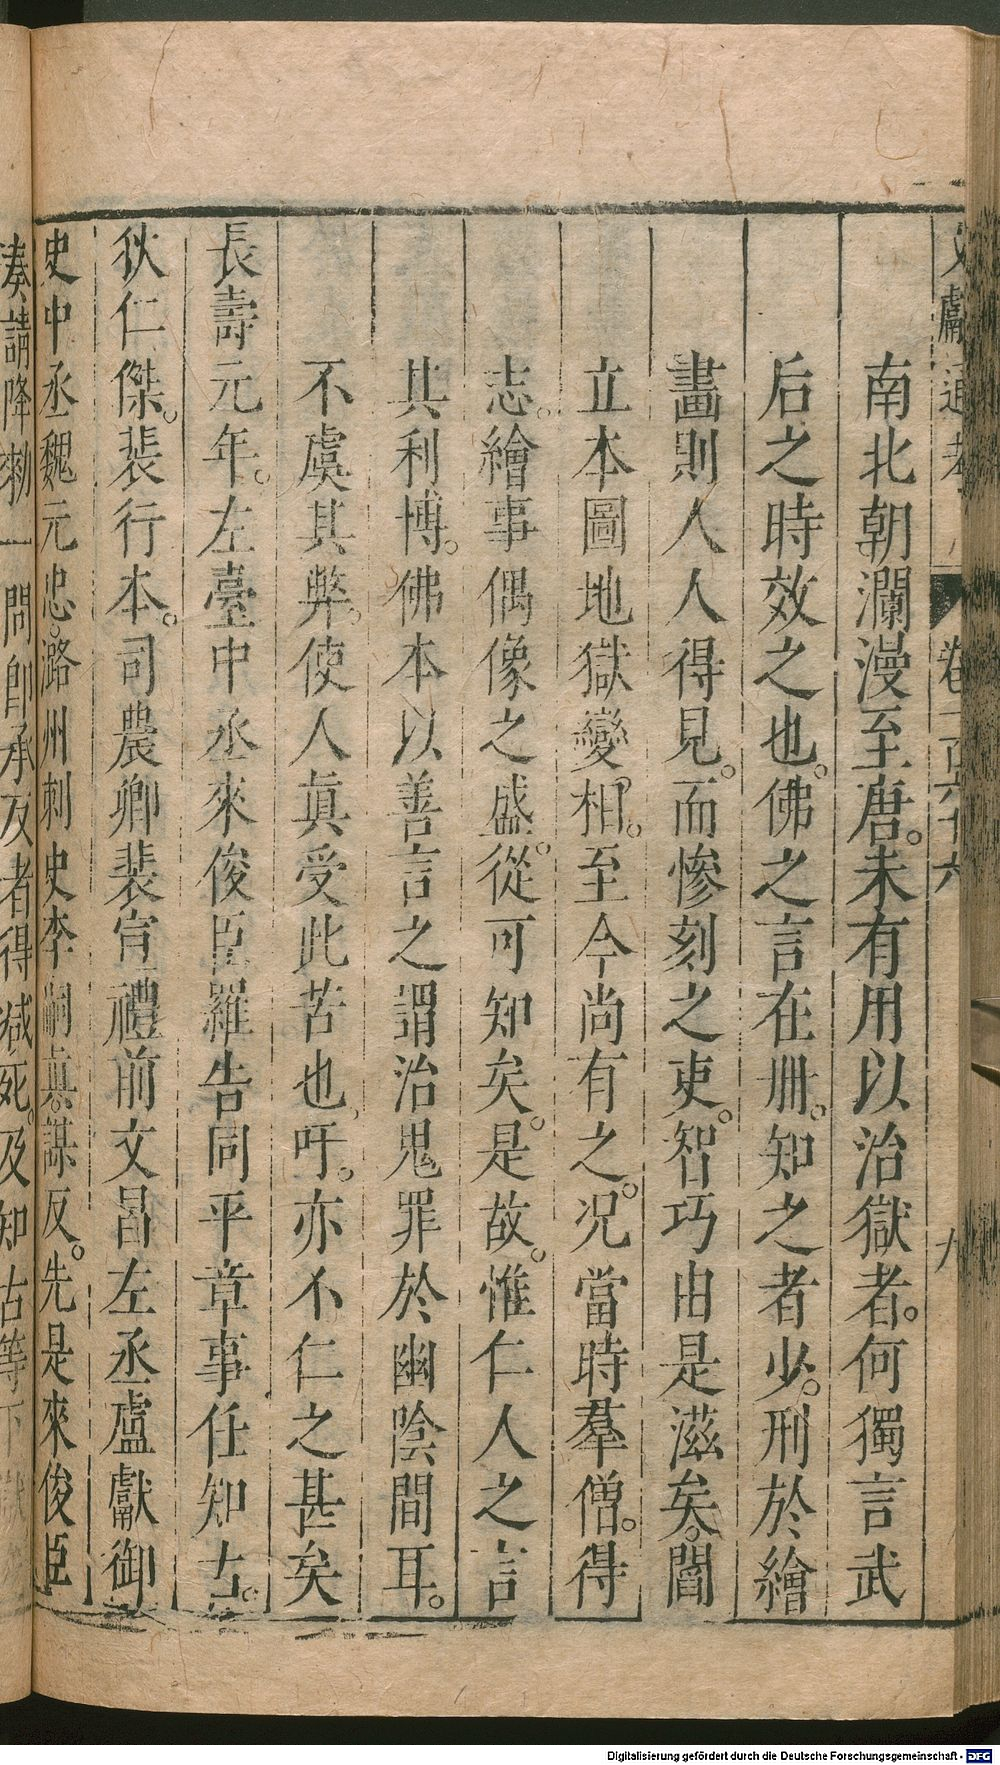 文獻通考 卷一百六十六 九
南北朝瀾漫至唐。未有用以治獄者。何獨言武
后之時效之也。佛之言在冊。知之者少。刑於繪
畫則人人得見。而慘刻之吏。智巧由是滋矣。閻
立本圖地獄變相。至今尚有之。况當時羣僧。得
志。繪事偶像之盛。從可知矣。是故。惟仁人之言
其利博。佛本以善言之謂治鬼罪於幽陰間耳。
不虞其弊。使人眞受此苦也。吁。亦不仁之甚矣
長壽元年。左臺中丞來俊臣羅告同平章事任知古。
狄仁傑。裴行本。司農卿裴宣禮前文昌左丞盧獻御
史中丞魏元忠。潞州刺史李嗣眞。謀反。先是來俊臣
湊請降勑一問卽承反者得减死。及知古等下獄
Digitalisierung gefördert durch die Deutsche Forschungsgemeinschaft - DFG